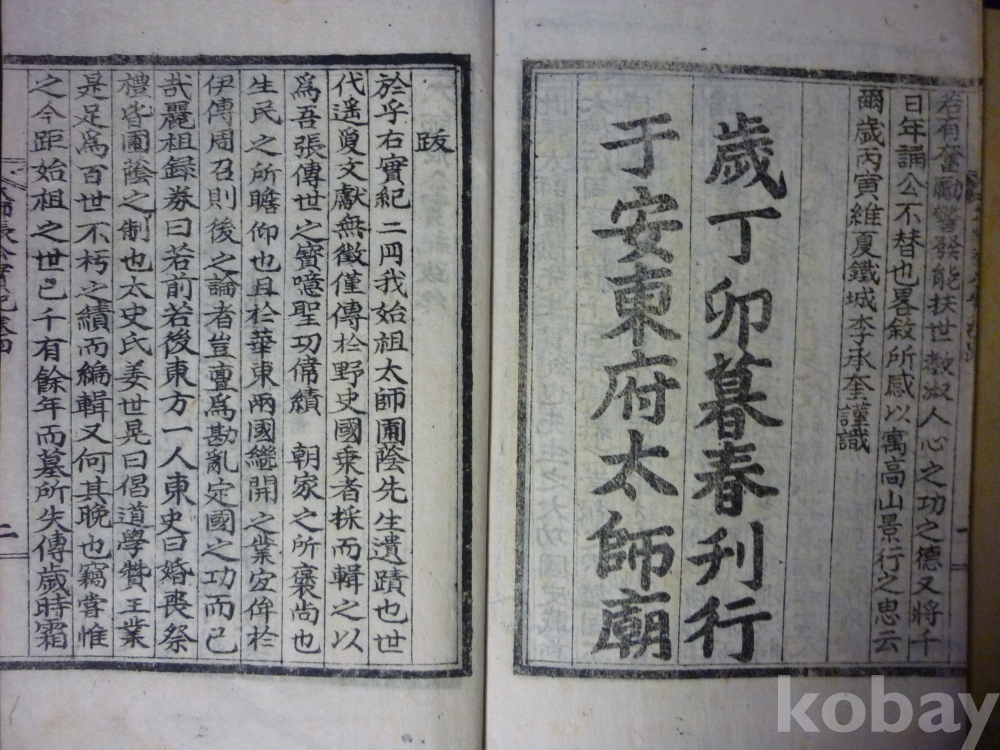 若有奮勵警發能扶世教淑人心之功之德又將千
日年誦公不替也畧敘所感以寓高山景行之思云
爾歲丙寅維夏鐵城李承奎謹識
歲丁卯暮春刊行
于安東府太師廟
跋
於乎右實紀二冊我始祖太師圃蔭先生遺蹟也世
代遥夐文獻無徵僅傳於野史國乘者採而輯之以
爲吾張傳世之寶噫聖功偉績 朝家之所褒尚也
生民之所瞻仰也且於華東兩國繼開之業宐侔於
伊傅周召則後之論者豈亶爲勘亂定國之功而已
㢤麗祖録券曰若前若後東方一人東史曰婚喪祭
禮皆圃蔭之制也太史氏姜世晃曰倡道學贊王業
是足爲百世不朽之績而編輯又何其晚也竊嘗惟
之今距始祖之世已千有餘年而墓所失傳歲時霜
二
kobay